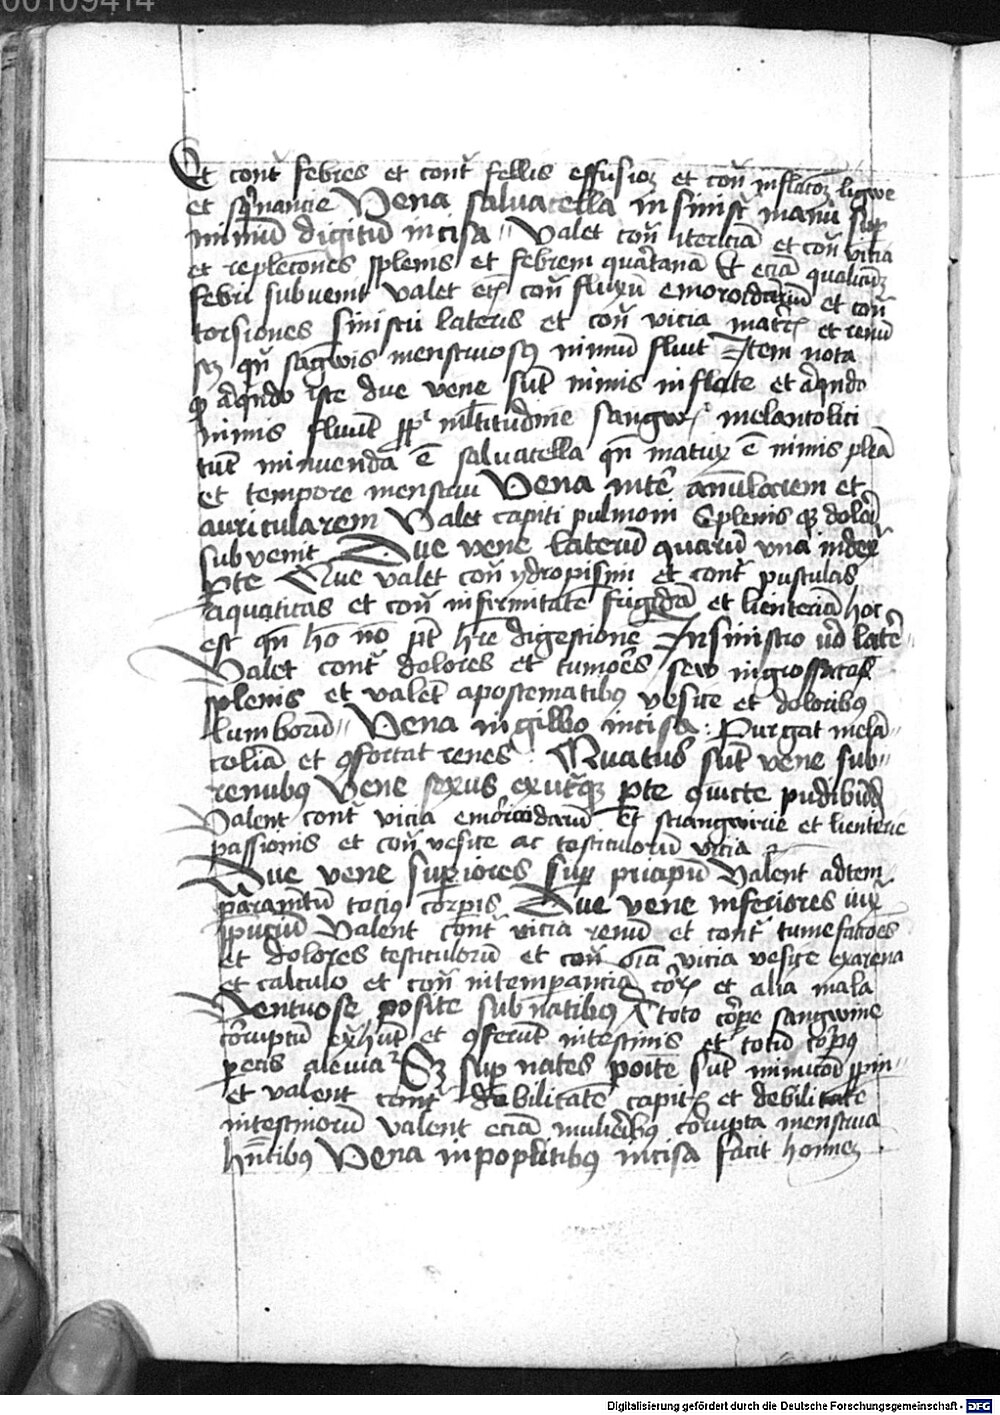 00109414
Et contͬ febres et contͬ fellis effusioꝫ et coñ inflacōꝫ ligwe
et sqͥnancie Vena salvacella in sinistͬ manu suꝑ
minimū digitū incisa Valet coñ itericiā et coñ vicia
et replecōnes splenis et febrem quartanā Et eciā qualicūqꝫ
febri subvenit valet etꝫ coñ fluxū emoroidarum et coñ
torsiones sinistri lateris et coñ vicia matͬꝫ et renū
sꝫ qñ sāgwis menstruosꝫ nimiū fluit Item nota
ꝙ aͤqndo iste due vene sūt nimis inflate et aͤqndo
nimis fluūt ꝓpͬ mͬltitudinē sangwꝫ melancolici
tūc minuenda ē salvacella qñ matͬx ē nimis plēa
et tempore menstrui Vena intͬ anularem et
auricularem Valet capiti pulmoni Splenis qꝫ dolorͥ
subvenit Due vene laterū quarū una in dexͬ
ꝑte Que valet coñ ydropisim et contͬ pustulas
aquaticas et coñ infirmitatē frigidā et lienteriā hoc
est qñ hō nō pͭt hr̄e digestionē In sinistro vͦ latͬe
Valet contͬ dolores et tumores seu ingrossacōꝫ
splenis et valet apostematibꝫ vesice et doloribꝫ
lumborū Vena in gibbo incisa Purgat melā
coliā et ꝯfortat renes Quatuͦ sūt vene sub
renubꝫ Vene sexus ex utͬqꝫ ꝑte ꝯiūcte pudibūdͥ
Valent contͬ vicia emoroidarū Et strangwirie et lienterie
passionis et coñ vesice ac testiculorū vicia
Due vene suꝑiores suꝑ priapū Valent ad tem
paramͭtū tocius corꝑis Due vene inferiores iuxͬ
ꝓpuciū Valent contͬ vicia renū et contͬ tumefacōēs
et dolores testiculorū et coñ oīa vicia vesice ex arena
et calculo et coñ intemꝑanciā corͬꝫ et alia mala
Ventuose posite sub natibꝫ A toto corꝑe sangwine
corruptū exͭhūt et ꝯferūt intestinis et totū corpꝯ
ꝑ ecis aleviaͭ Sꝫ suꝑ nates poite sūt
et valent contͬ debilitatē capitꝫ et debilitatē
intestinorū valent eciā mulieribꝫ corrupta menstrua
hñtibꝫ Vena in poplitibꝫ incisa facit homineꝫ
Digitalisierung gefördert durch die Deutsche Forschungsgemeinschaft - DFG